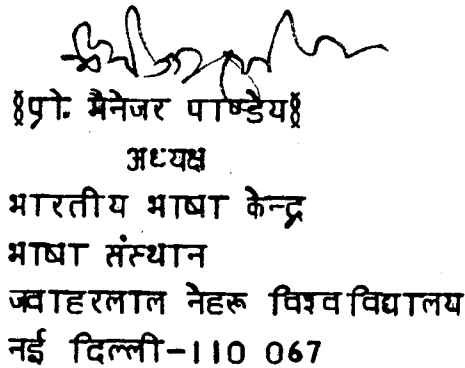 §प्रो. मैनेजर पाण्डेय§
अध्यक्ष
भारतीय भाषा केन्द्र
भाषा संस्थान
जवाहरलाल नेहरू विश्वविद्यालय
नई दिल्ली-110 067